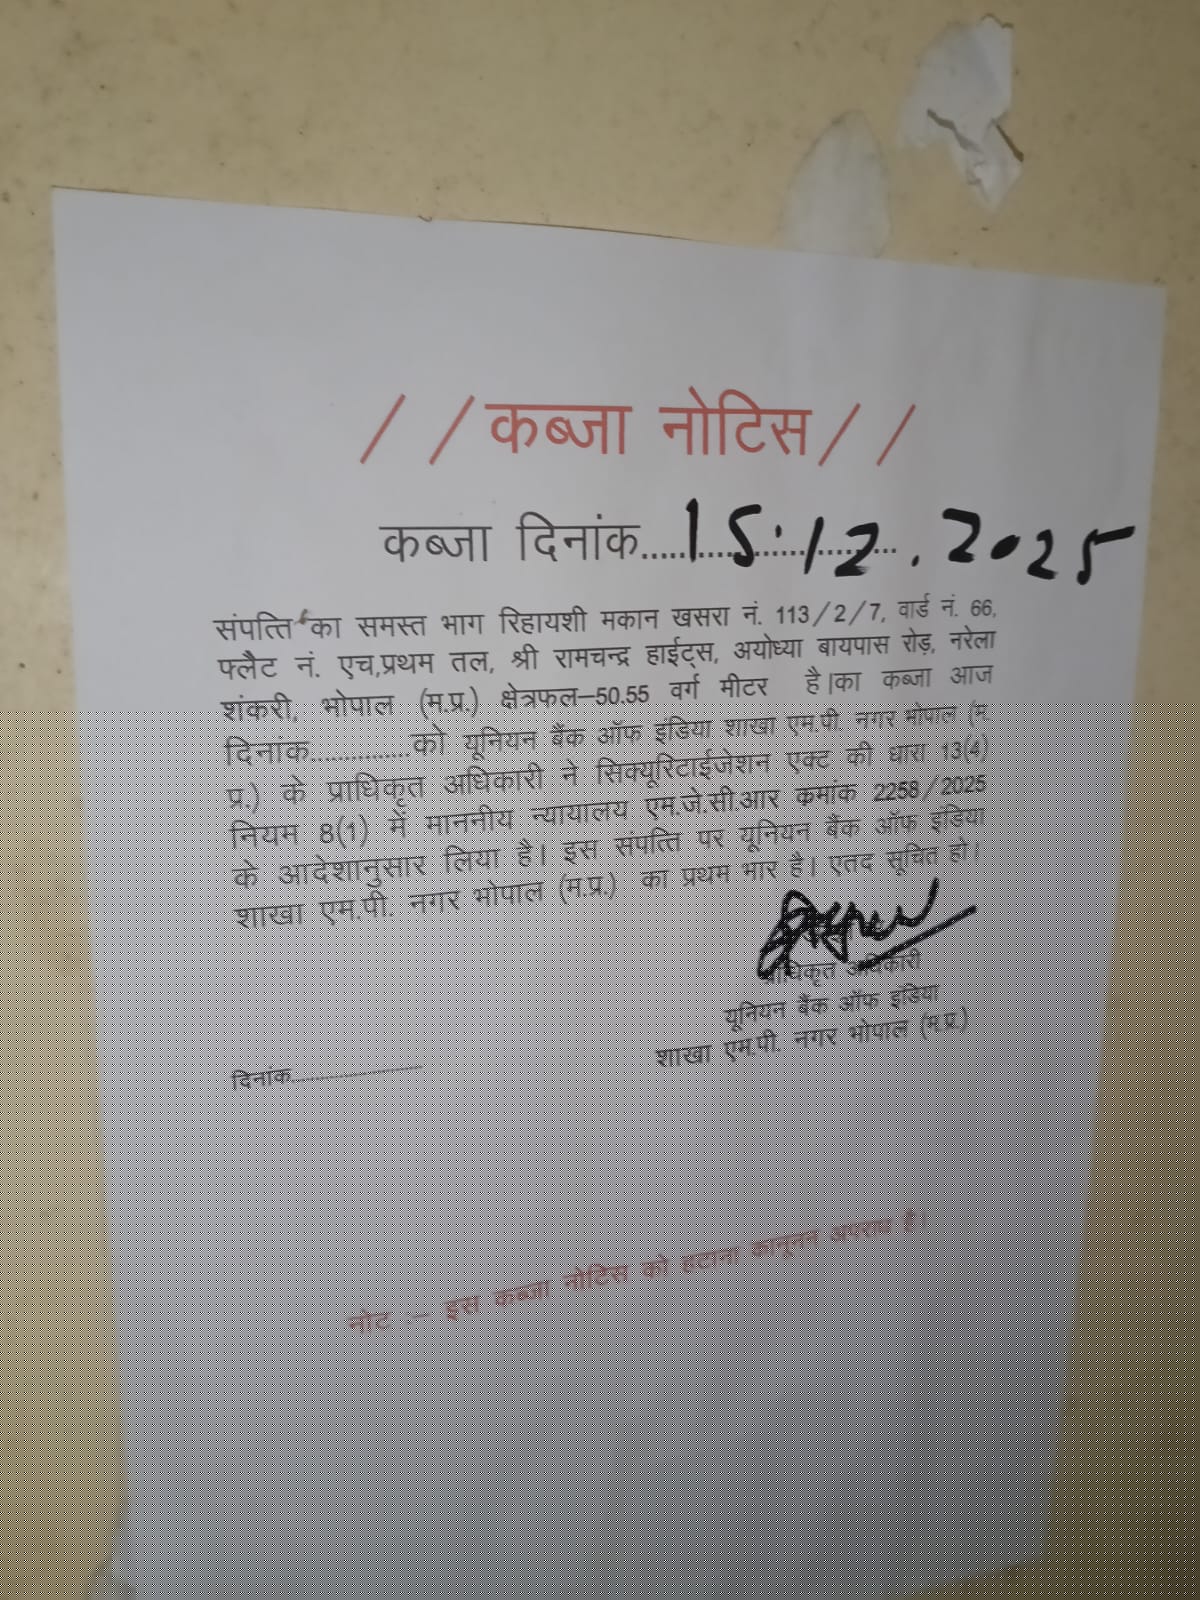 //कब्जा नोटिस//
कब्जा दिनांक..........................15.12.2025
संपत्ति का समस्त भाग रिहायशी मकान खसरा नं. 113/2/7, वार्ड नं. 66,
फ्लैट नं. एच,प्रथम तल, श्री रामचन्द्र हाईट्स, अयोध्या बायपास रोड़, नरेला
शंकरी, भोपाल (म.प्र.) क्षेत्रफल–50.55 वर्ग मीटर है।का कब्जा आज
दिनांक...............को यूनियन बैंक ऑफ इंडिया शाखा एम.पी. नगर भोपाल (म.
प्र.) के प्राधिकृत अधिकारी ने सिक्यूरिटाईजेशन एक्ट की धारा 13(4)
नियम 8(1) में माननीय न्यायालय एम.जे.सी.आर कमांक 2258/2025
के आदेशानुसार लिया है। इस संपत्ति पर यूनियन बैंक ऑफ इंडिया
शाखा एम.पी. नगर भोपाल (म.प्र.) का प्रथम भार है। एतद सूचित हो।
प्राधिकृत अधिकारी
यूनियन बैंक ऑफ इंडिया
शाखा एम.पी. नगर भोपाल (म.प्र.)
दिनांक..........................
नोट :– इस कब्जा नोटिस को हटाना कानूनन अपराध है।